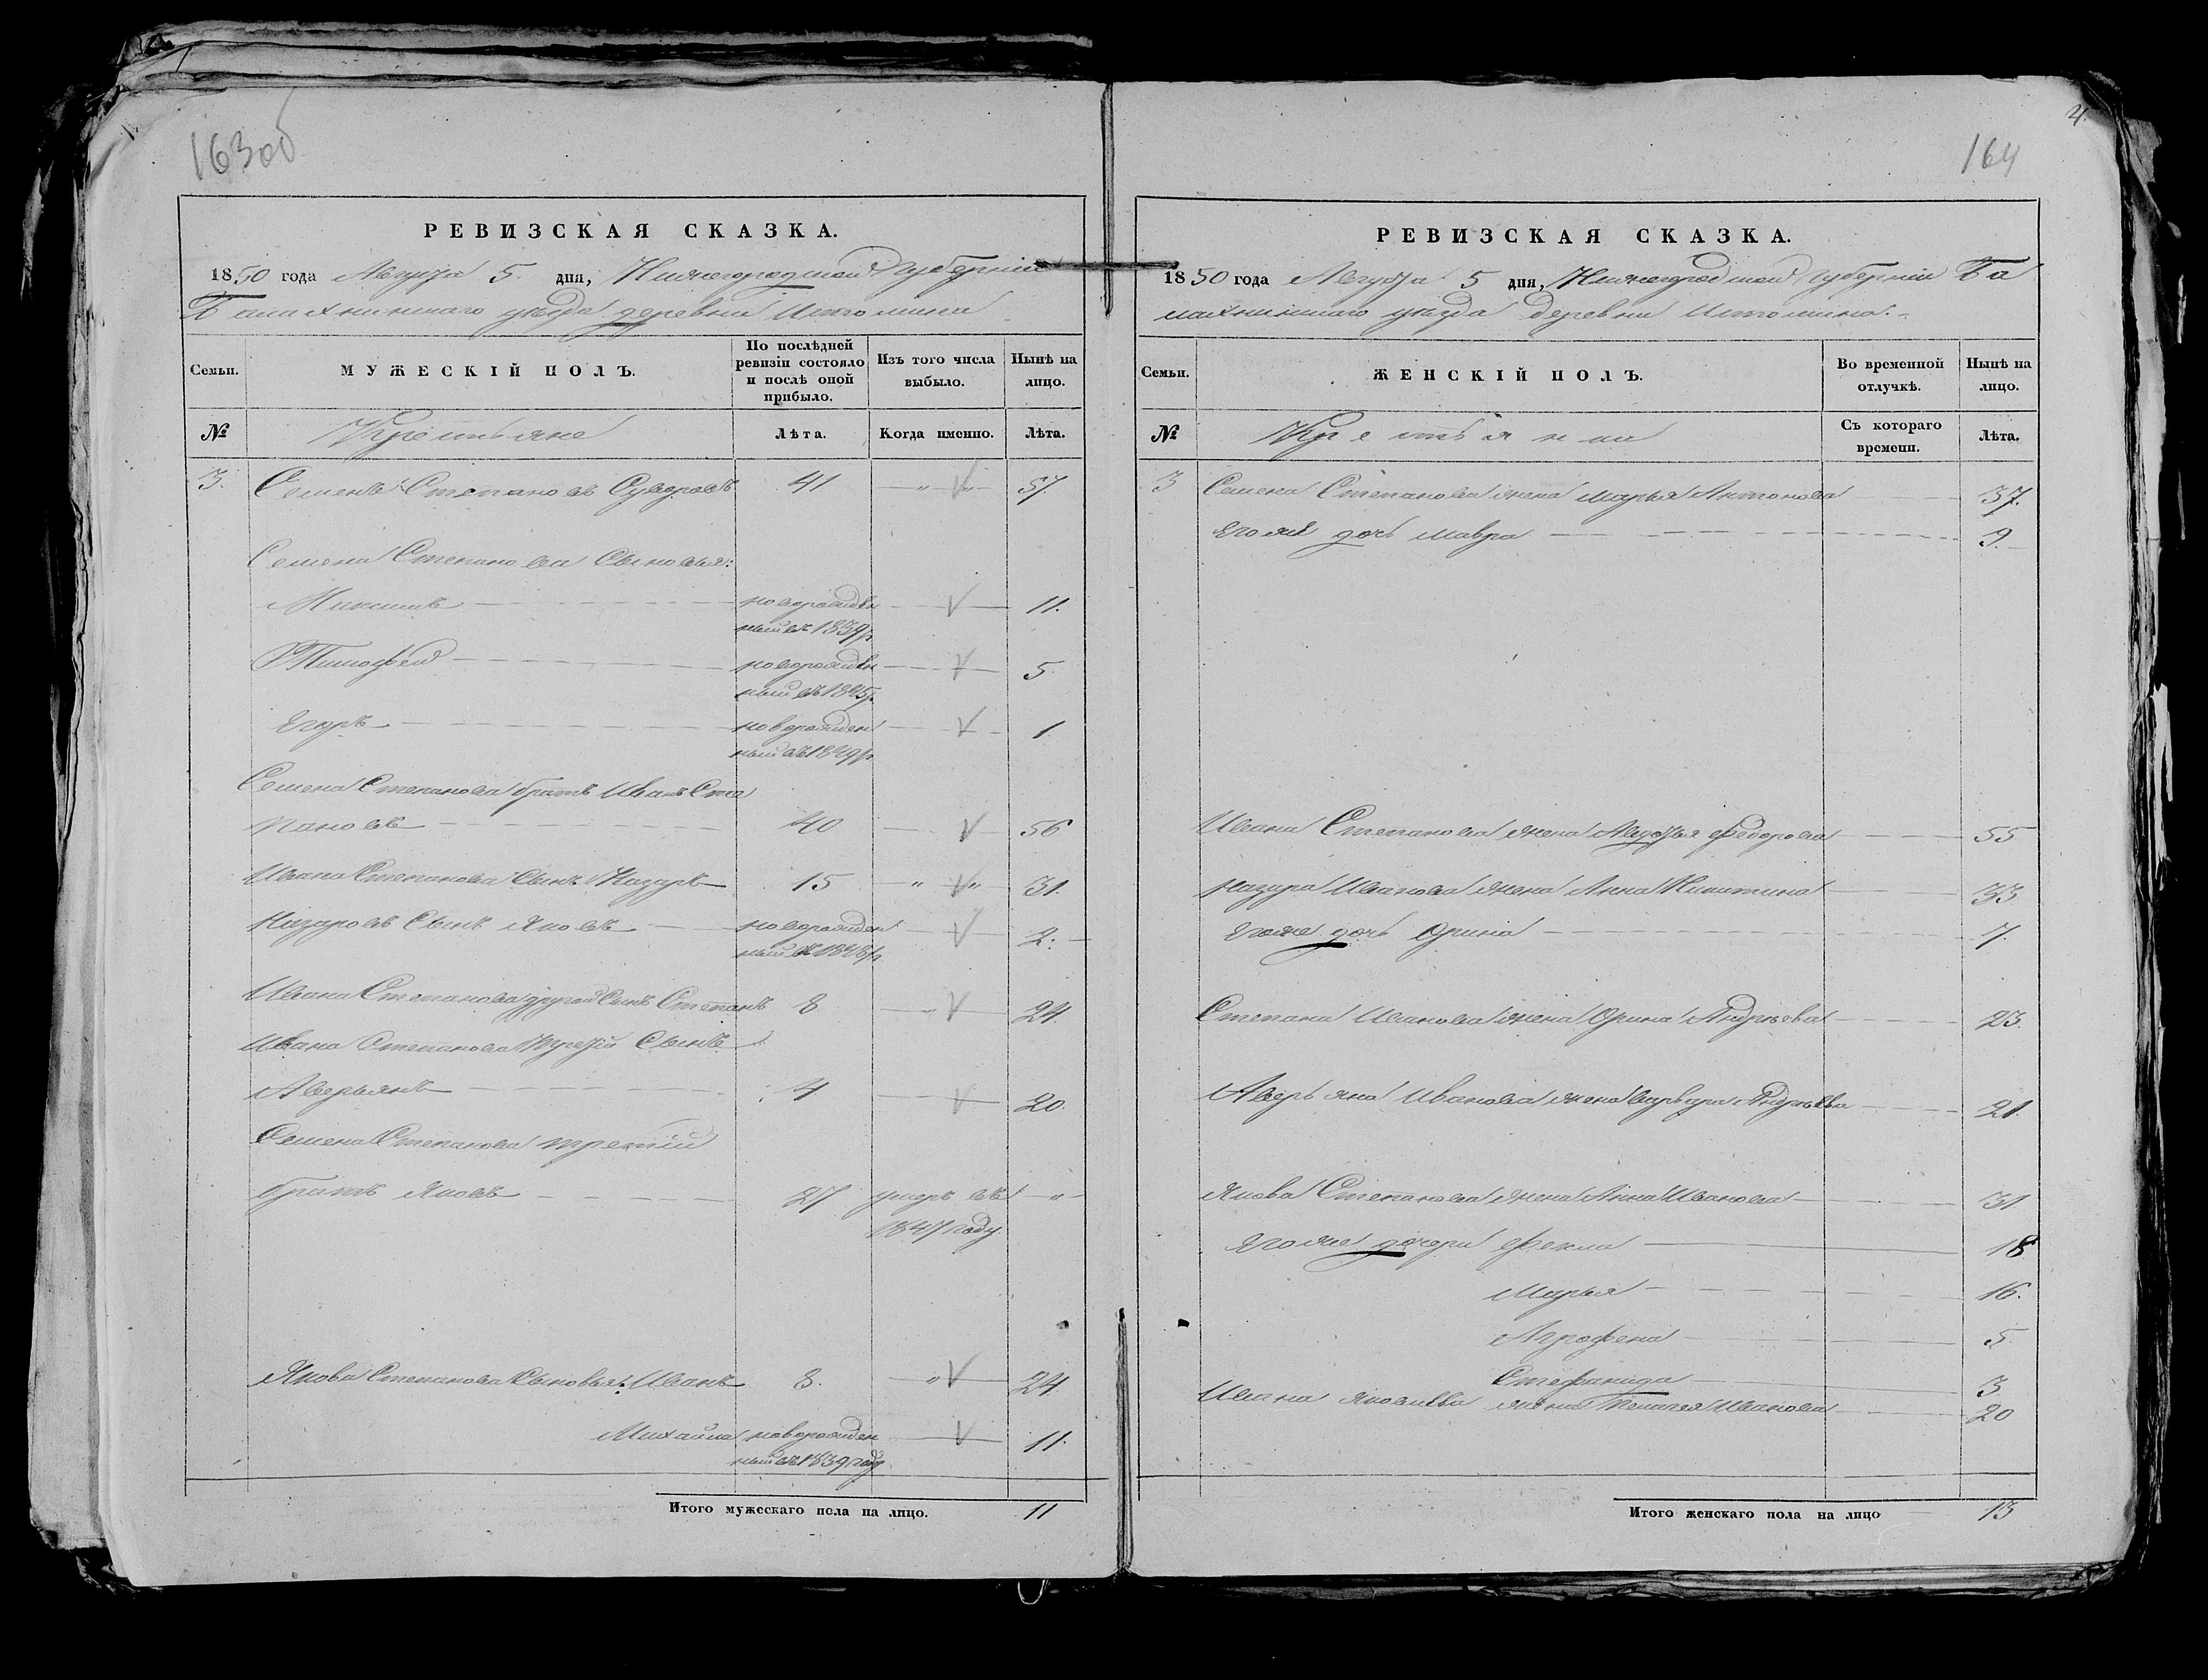 163об
РЕВИЗСКАЯ СКАЗКА.
1850 года Августа 5 дня, Нижегородской губернии
Балахнинскаго уезда деревни Истомина
Семьи.
МУЖЕСКІЙ ПОЛЪ.
По послѣдней ревизіи состояло и послѣ оной прибыло.
Изъ того числа выбыло.
Нынѣ на лицо.
№ Крестьяне Лѣта. Когда именно. Лѣта.
3. Семенъ Степановъ 41 — „ V „ 57.
Семена Степанова Сыновья:
Максимъ — новорожден V 11.
ный въ 1839 г.
Тимофей — новорожден V 5.
ный въ 1845 г.
Егоръ — новорожден V 1
ный въ 1849 г.
Семена Степанова братъ Иванъ Сте
пановъ — 40 V 56
Ивана Степанова Сынъ Назаръ 15 „ V „ 31.
Назаровъ Сынъ Яковъ — новорожден V 2.
ный въ 1848 г.
Ивана Степанова другой Сынъ Степанъ 8 V 24.
Ивана Степанова третій Сынъ
Аверьянъ — 4 V 20.
Семена Степанова третій
братъ Яковъ — 27 умеръ въ — „ -
1847 году.
Якова Степанова Сыновья: Иванъ 8. „ V 24
Михайла новорожден V 11.
ный въ 1839 году
Итого мужескаго пола на лицо. 11
4.
164
РЕВИЗСКАЯ СКАЗКА.
1850 года Августа 5 дня, Нижегородской губернии Ба
лахнинскаго уезда деревни Истомина.
Семьи.
ЖЕНСКІЙ ПОЛЪ.
Во временной отлучкѣ.
Нынѣ на лицо.
№ Крестьянки Съ котораго времени. Лѣта.
3 Семена Степанова жена Марья Антонова 37.
Его же дочь Мавра 9.
Ивана Степанова жена Авдотья Федорова 55
Назара Иванова жена Анна Никитина 33
Его же дочь Орина 7.
Степана Иванова жена Орина Андреева 23.
Аверьяна Иванова жена Варвара Андреева 21.
Якова Степанова жена Анна Иванова 31
Его же дочери Фекла 18
Марья 16.
Аграфена 5.
Стефанида 3
Ивана Яковлева жена Пелагея Иванова 20
Итого женскаго пола на лицо 13